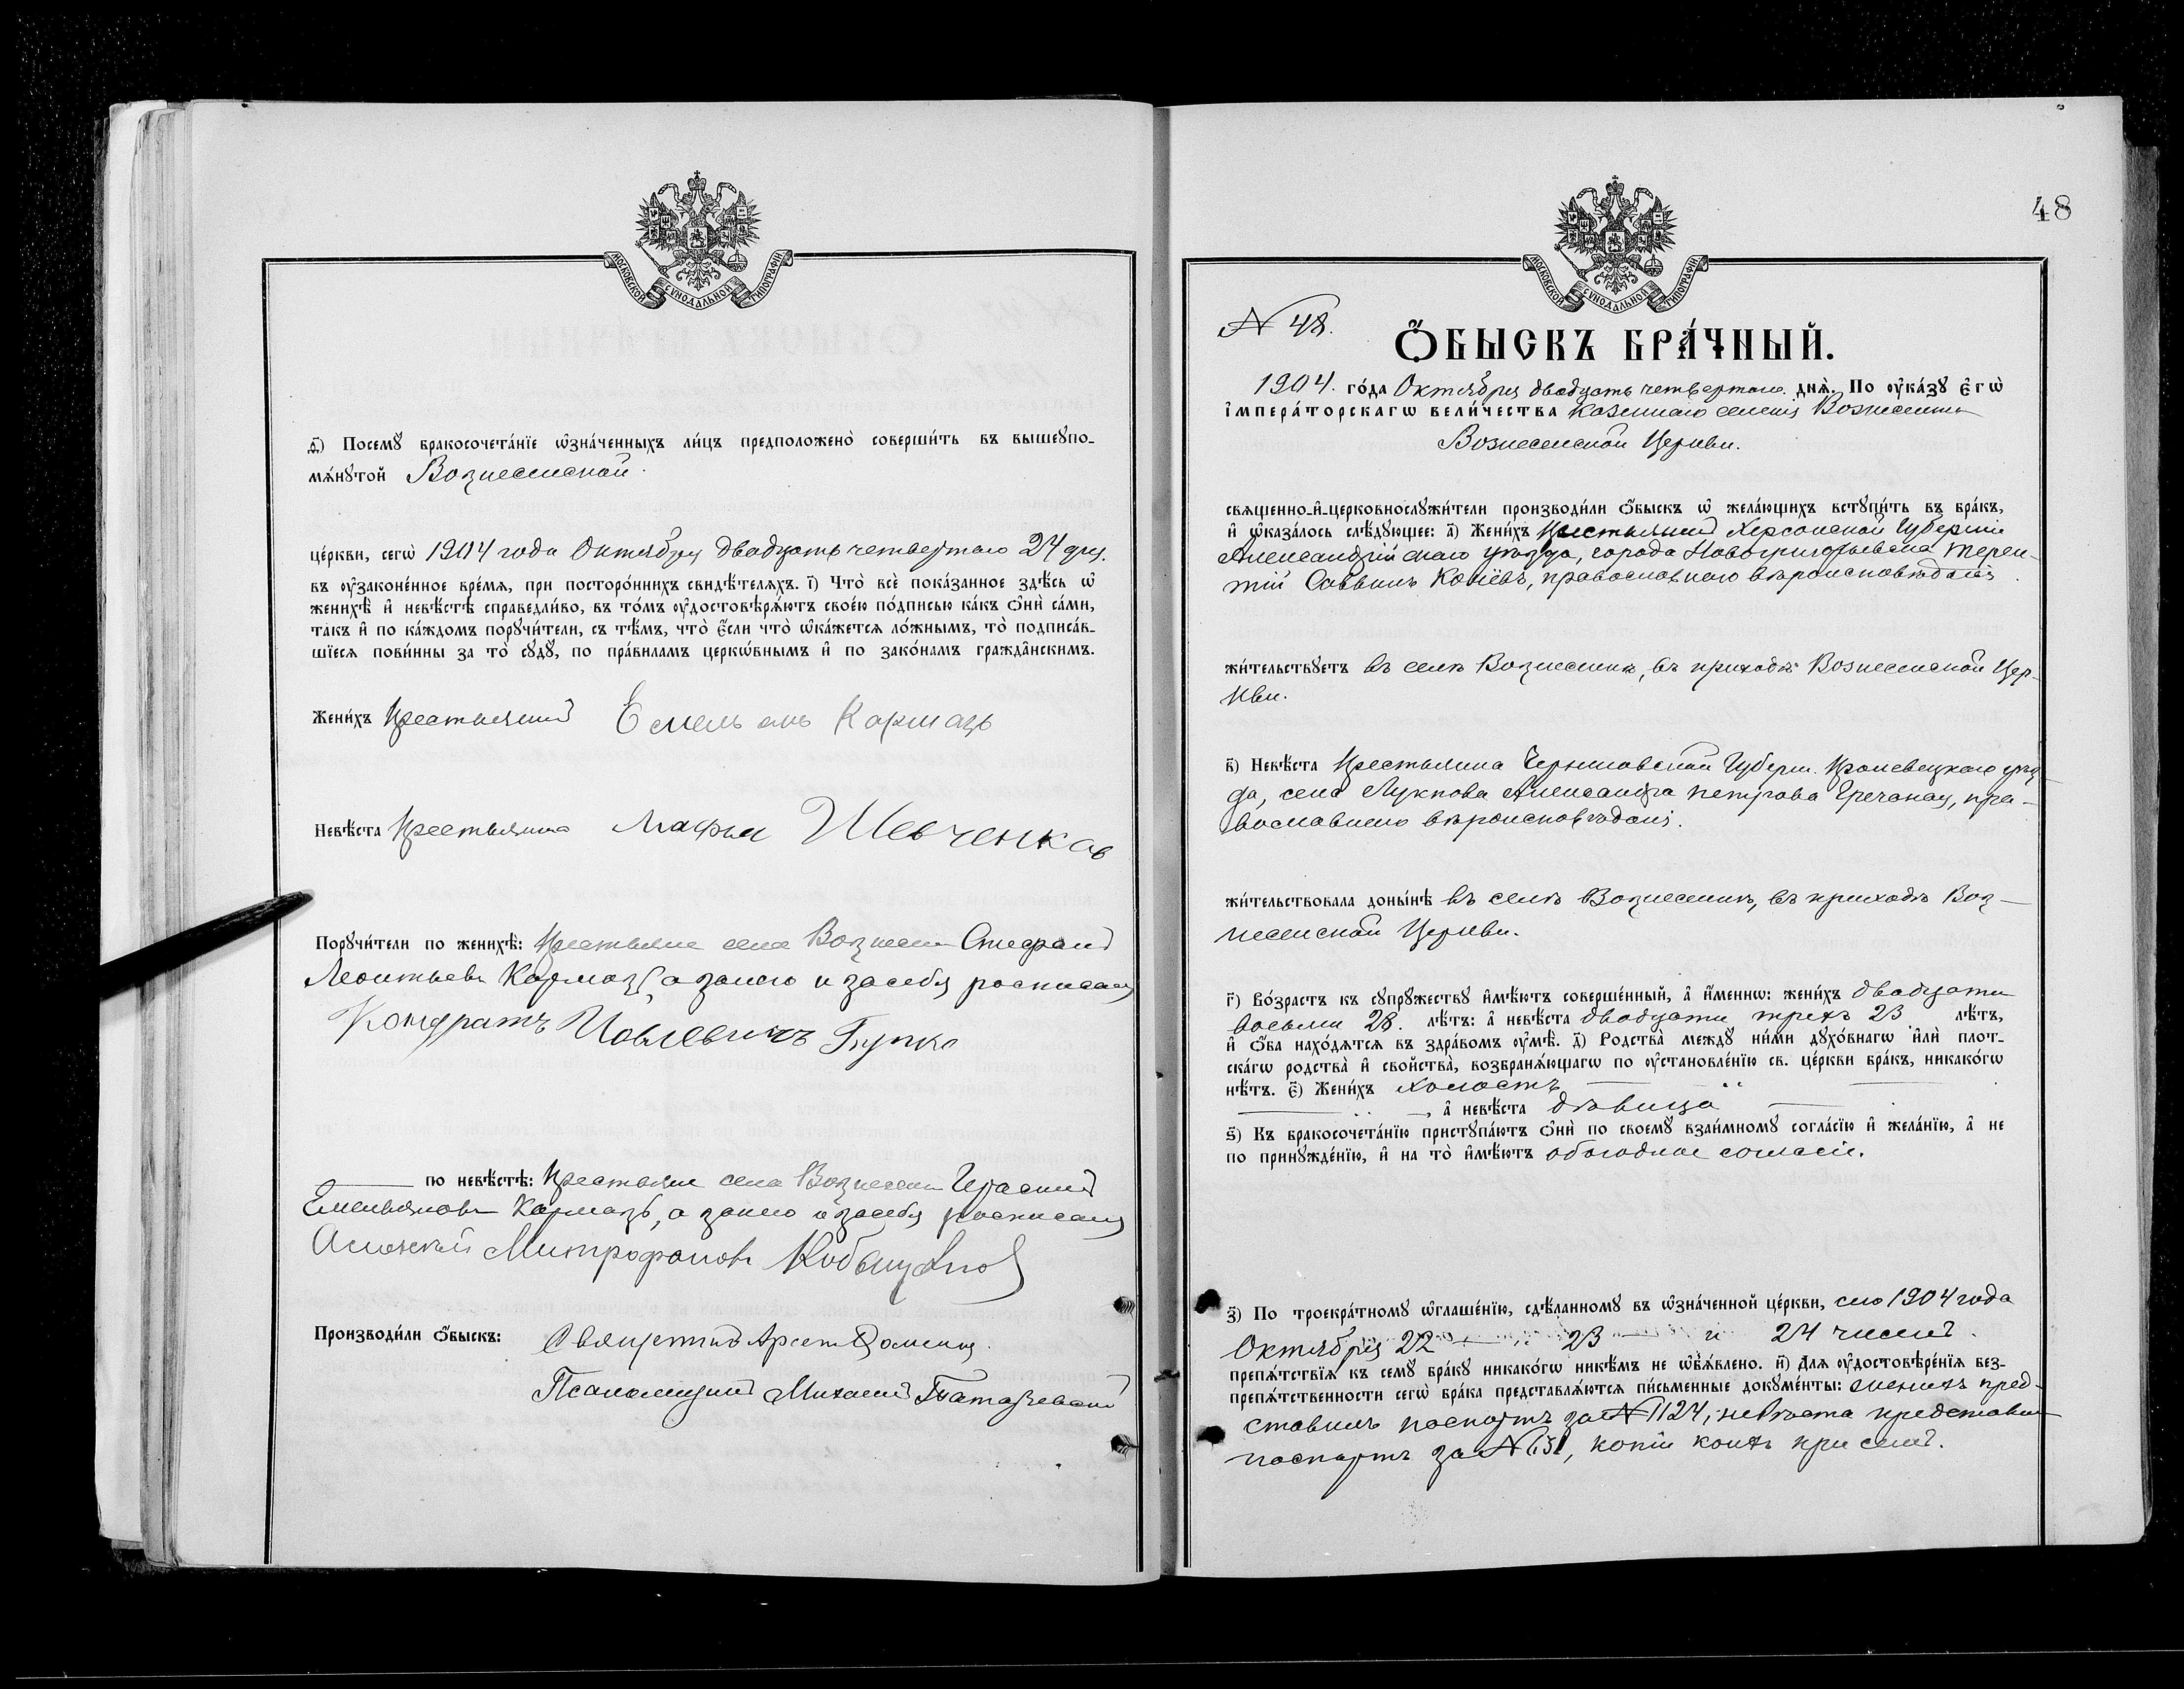 МОСКОВСКОЙ СѴНОДАЛЬНОЙ ТИПОГРАФІИ
д҃) Посемꙋ бракосочета́нїе ѡ҆зна́ченныхъ ли́цъ предположено̀ соверши́ть въ вышеꙋпо-
мѧ́нꙋтой Вознесенской
це́ркви, сегѡ̀ 1904 года Октября двадцать четвертаго 24 дня.
въ оу҆законе́нное вре́мѧ, при посторо́ннихъ свидѣ́телѧхъ. і҃) Что̀ всѐ пока́занное здѣ́сь ѡ҆
женихѣ̀ и҆ невѣ́стѣ справедли́во, въ то́мъ оу҆достовѣрѧ́ютъ свое́ю по́дписью ка́къ ѻ҆нѝ са́ми,
та́къ и҆ по ка́ждомъ порꙋчи́тели, съ тѣ́мъ, что̀ є҆́сли что̀ ѡ҆ка́жетсѧ ло́жнымъ, то̀ подписа́в-
шїесѧ пови́нны за то̀ сꙋдꙋ̀, по пра́виламъ церкѡ́внымъ и҆ по зако́намъ гражда̂нскимъ.
Жени́хъ крестьянинъ Емельянъ Кармазъ
Невѣ́ста крестьянка Марфа Шевченкова
Порꙋчи́тели по женихѣ̀: Крестьяне села Вознесен Стефанъ
Леонтьевъ Кармазъ, а за него и за себя росписался
Кондратъ Иовлевичъ
по невѣ́стѣ: Крестьяне села Вознесен Герасимъ
Емельяновъ Кармазъ, а за него и за себя росписался
Митрофановъ
Производи́ли ѻ҆́быскъ: Священникъ
Псаломщикъ Михаилъ
48
МОСКОВСКОЙ СѴНОДАЛЬНОЙ ТИПОГРАФІИ
N 48.
Ѻ҆БЫСКЪ БРА́ЧНЫЙ.
1904. го́да Октября двадцать четвертаго днѧ̀. По оу҆ка́зꙋ є҆гѡ̀
і҆мпера́торскагѡ вели́чества казеннаго селенія Вознесенки
Вознесенской Церкви.
свѧщенно-и҆-церковнослꙋжи́тели производи́ли ѻ҆́быскъ ѡ҆ жела́ющихъ встꙋпи́ть въ бра́къ,
и҆ ѡ҆каза́лось слѣ́дꙋющее: а҃) Жени́хъ крестьянинъ Херсонской Губерніи
Александрійскаго уѣзда, города Новогригорьевска Терен-
тій Саввинъ Копіевъ, православнаго вѣроисповѣданія.
жи́тельствꙋетъ въ селѣ Вознесенкѣ, въ приходѣ Вознесенской Цер-
кви.
в҃) Невѣ́ста крестьянка Черниговской Губерн. Кролевецкаго уѣз-
да, села Лукнова Александра Петрова Гречаная, пра-
вославнаго вѣроисповѣданія.
жи́тельствовала доны́нѣ въ селѣ Вознесенкѣ, въ приходѣ Воз-
несенской Церкви.
г҃) Во́зрастъ къ сꙋпрꙋ́жествꙋ и҆мѣ́ютъ соверше́нный, а҆ и҆́меннѡ: жени́хъ двадцати
восьми 28. лѣ́тъ: а҆ невѣ́ста двадцати трехъ 23 лѣ́тъ,
и҆ ѻ҆́ба нахо́дѧтсѧ въ здра́вомъ оу҆мѣ̀. д҃) Родства̀ междꙋ ни́ми дꙋхо́внагѡ и҆лѝ плот-
ска́гѡ родства̀ и҆ свойства̀, возбранѧ́ющагѡ по оу҆становле́нїю св. це́ркви бра́къ, никако́гѡ
нѣ́тъ. є҃) Жени́хъ холостъ
, а҆ невѣ́ста дѣвица
ѕ҃) Къ бракосочета́нїю пристꙋпа́ютъ ѻ҆нѝ по своемꙋ̀ взаи́мномꙋ согла́сїю и҆ жела́нїю, а҆ не
по принꙋжде́нїю, и҆ на то̀ и҆мѣ́ютъ обоюдное согласіе.
з҃) По троекра́тномꙋ ѡ҆глаше́нїю, сдѣ́ланномꙋ въ ѡ҆зна́ченной це́ркви, сего 1904 года
Октября 22 23 и 24 чиселъ.
препѧ́тствїѧ къ семꙋ̀ бра́кꙋ никако́гѡ никѣ́мъ не ѡ҆б̾ѧ́влено. и҃) Длѧ оу҆достовѣре́нїѧ без-
препѧ́тственности сегѡ̀ бра́ка представлѧ́ютсѧ пи́сьменные докꙋме́нты: женихъ пред-
ставилъ паспортъ за N 1124, невѣста представила
паспортъ за N 651, копіи коихъ при семъ.